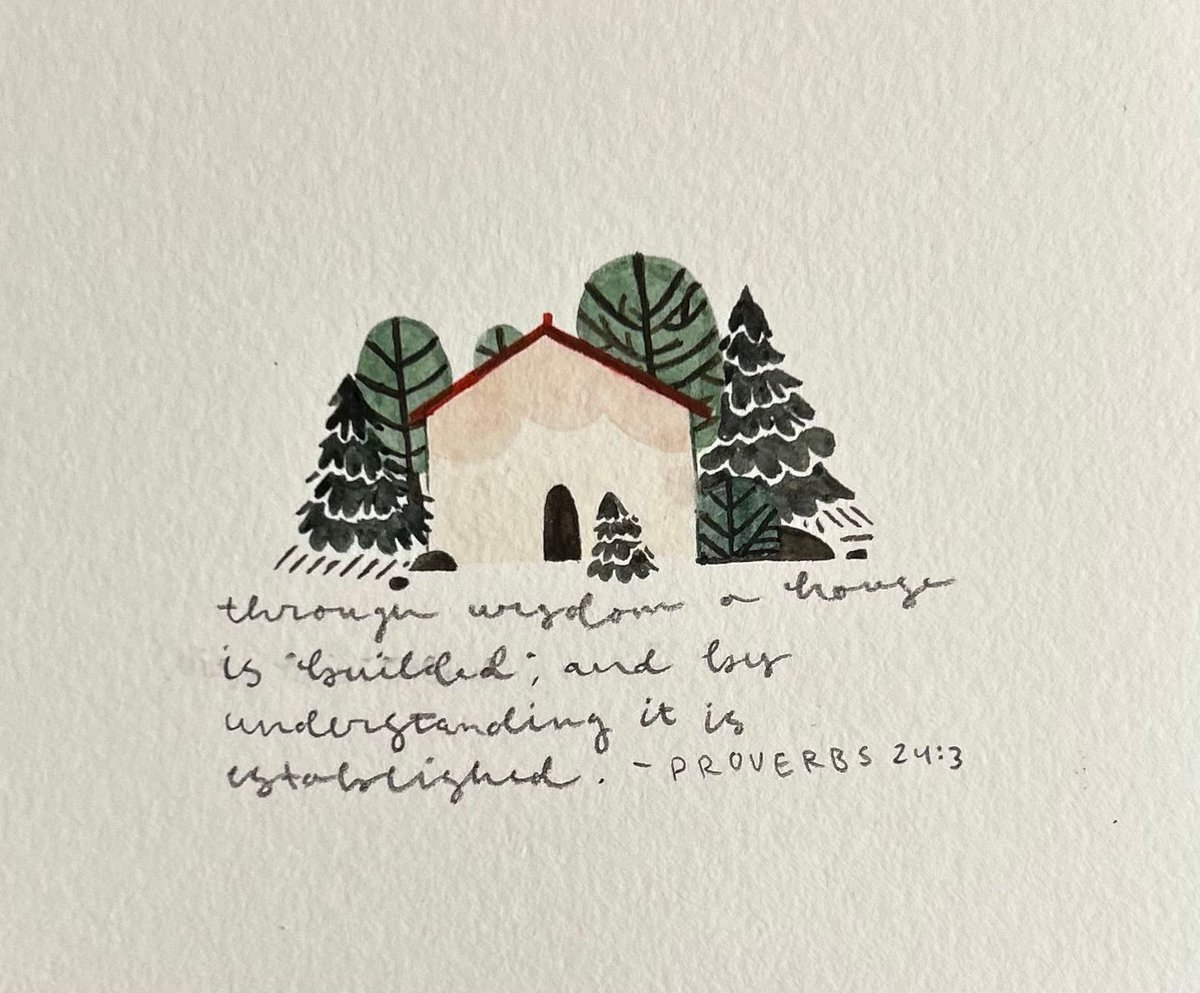 through wisdom a house
is "builded", and by
understanding it is
established. - PROVERBS 24:3